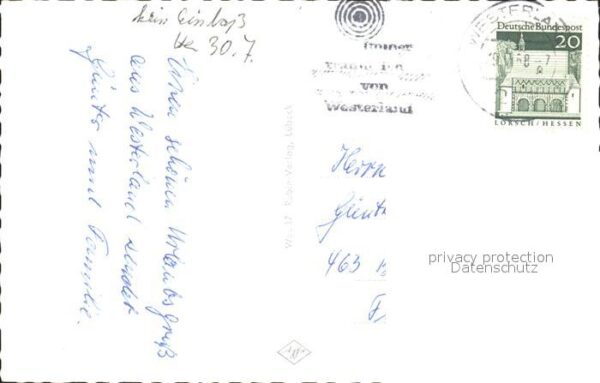 kein Einlaß
30.7.
Einen schönen Urlaubsgruß
aus Westerland sendet
Günter und Familie.
von
Westerland
WESTERLAN
Deutsche Bundespost
20
LORSCH/HESSEN
Rubin-Verlag, Lübeck
Herrn
Günt
463
F
privacy protection
Datenschutz